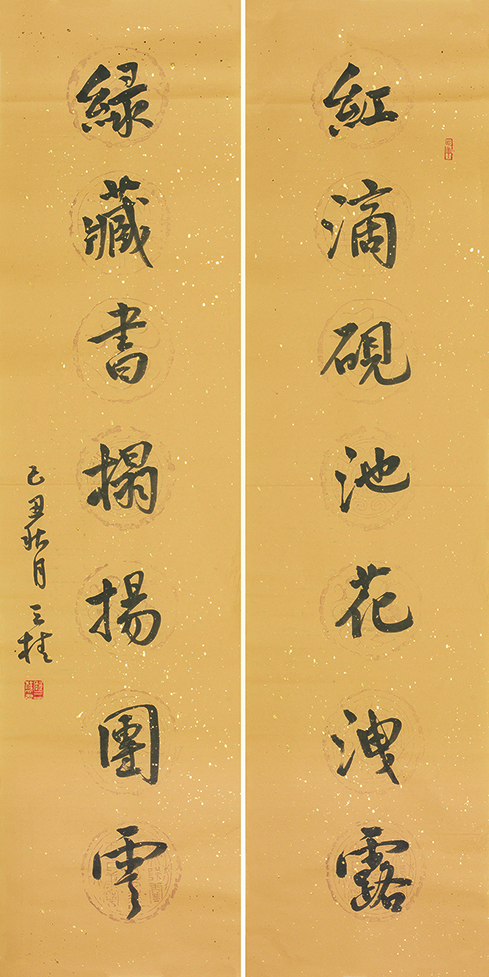 紅滴硯池花洩露
綠藏書榻揚團雲
己丑秋月